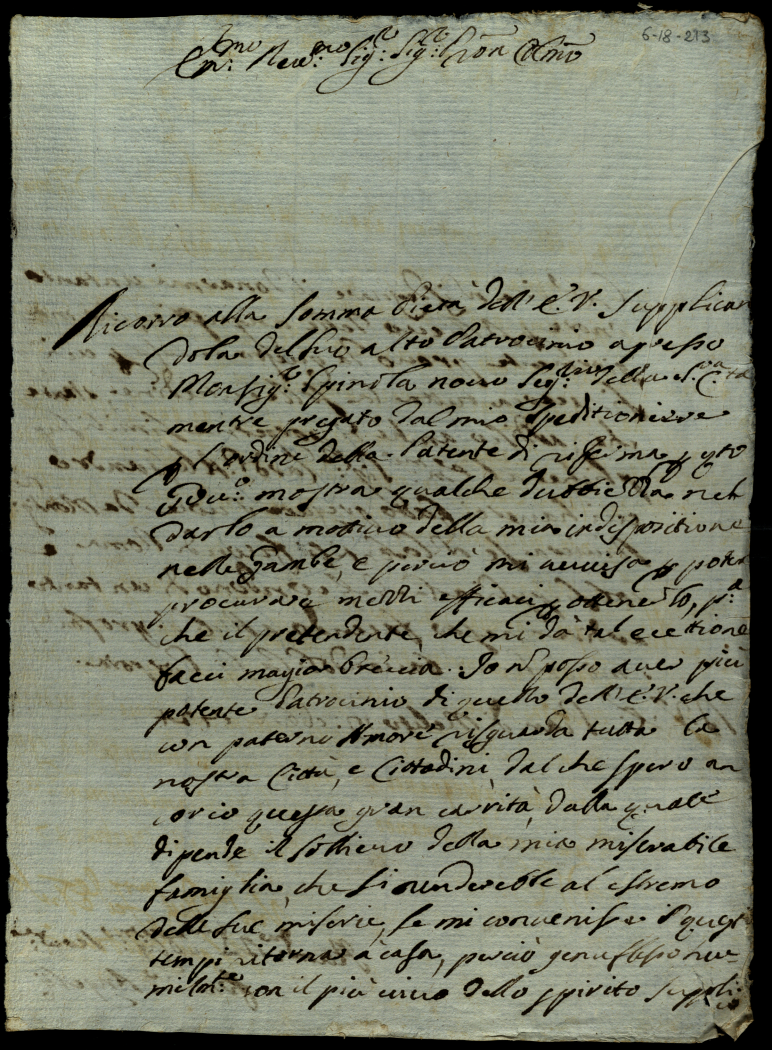 6-18-213
Em:mo Reu:mo Sig:r Sig:r Pron Colmo
Ricorro alla somma Pietà dell'E.V. supplican
dola del suo alto Patrocinio apresso
Monsig:r Spinola nouo Seg:rio della S. C.
mentre pregato dal mio Speditioniere
p l'ordine della Patente di p qto
mostra qualche dubbietà nel
darlo a mottiuo della mia indispositione
nelle gambe, e perciò mi auuisa p poter
procurare mezzi efficaci p ottenerlo, p:a
che il pretendente, che mi dà tal ecettione
facci magior breccia. Io n posso auer più
potente Patrocinio di quello dell'E.V. che
con paterno Amore risguarda tutta la
nostra Città, e Cittadini, dal che spero an
cor io questa gran carità, dalla quale
dipende il sollieuo della mia miserabile
famiglia, che si renderebbe al estremo
delle sue miserie, se mi conuenisse in questi
tempi ritornar à casa, perciò genuflesso nu
milm:te con il più uiuo dello spirito supplico